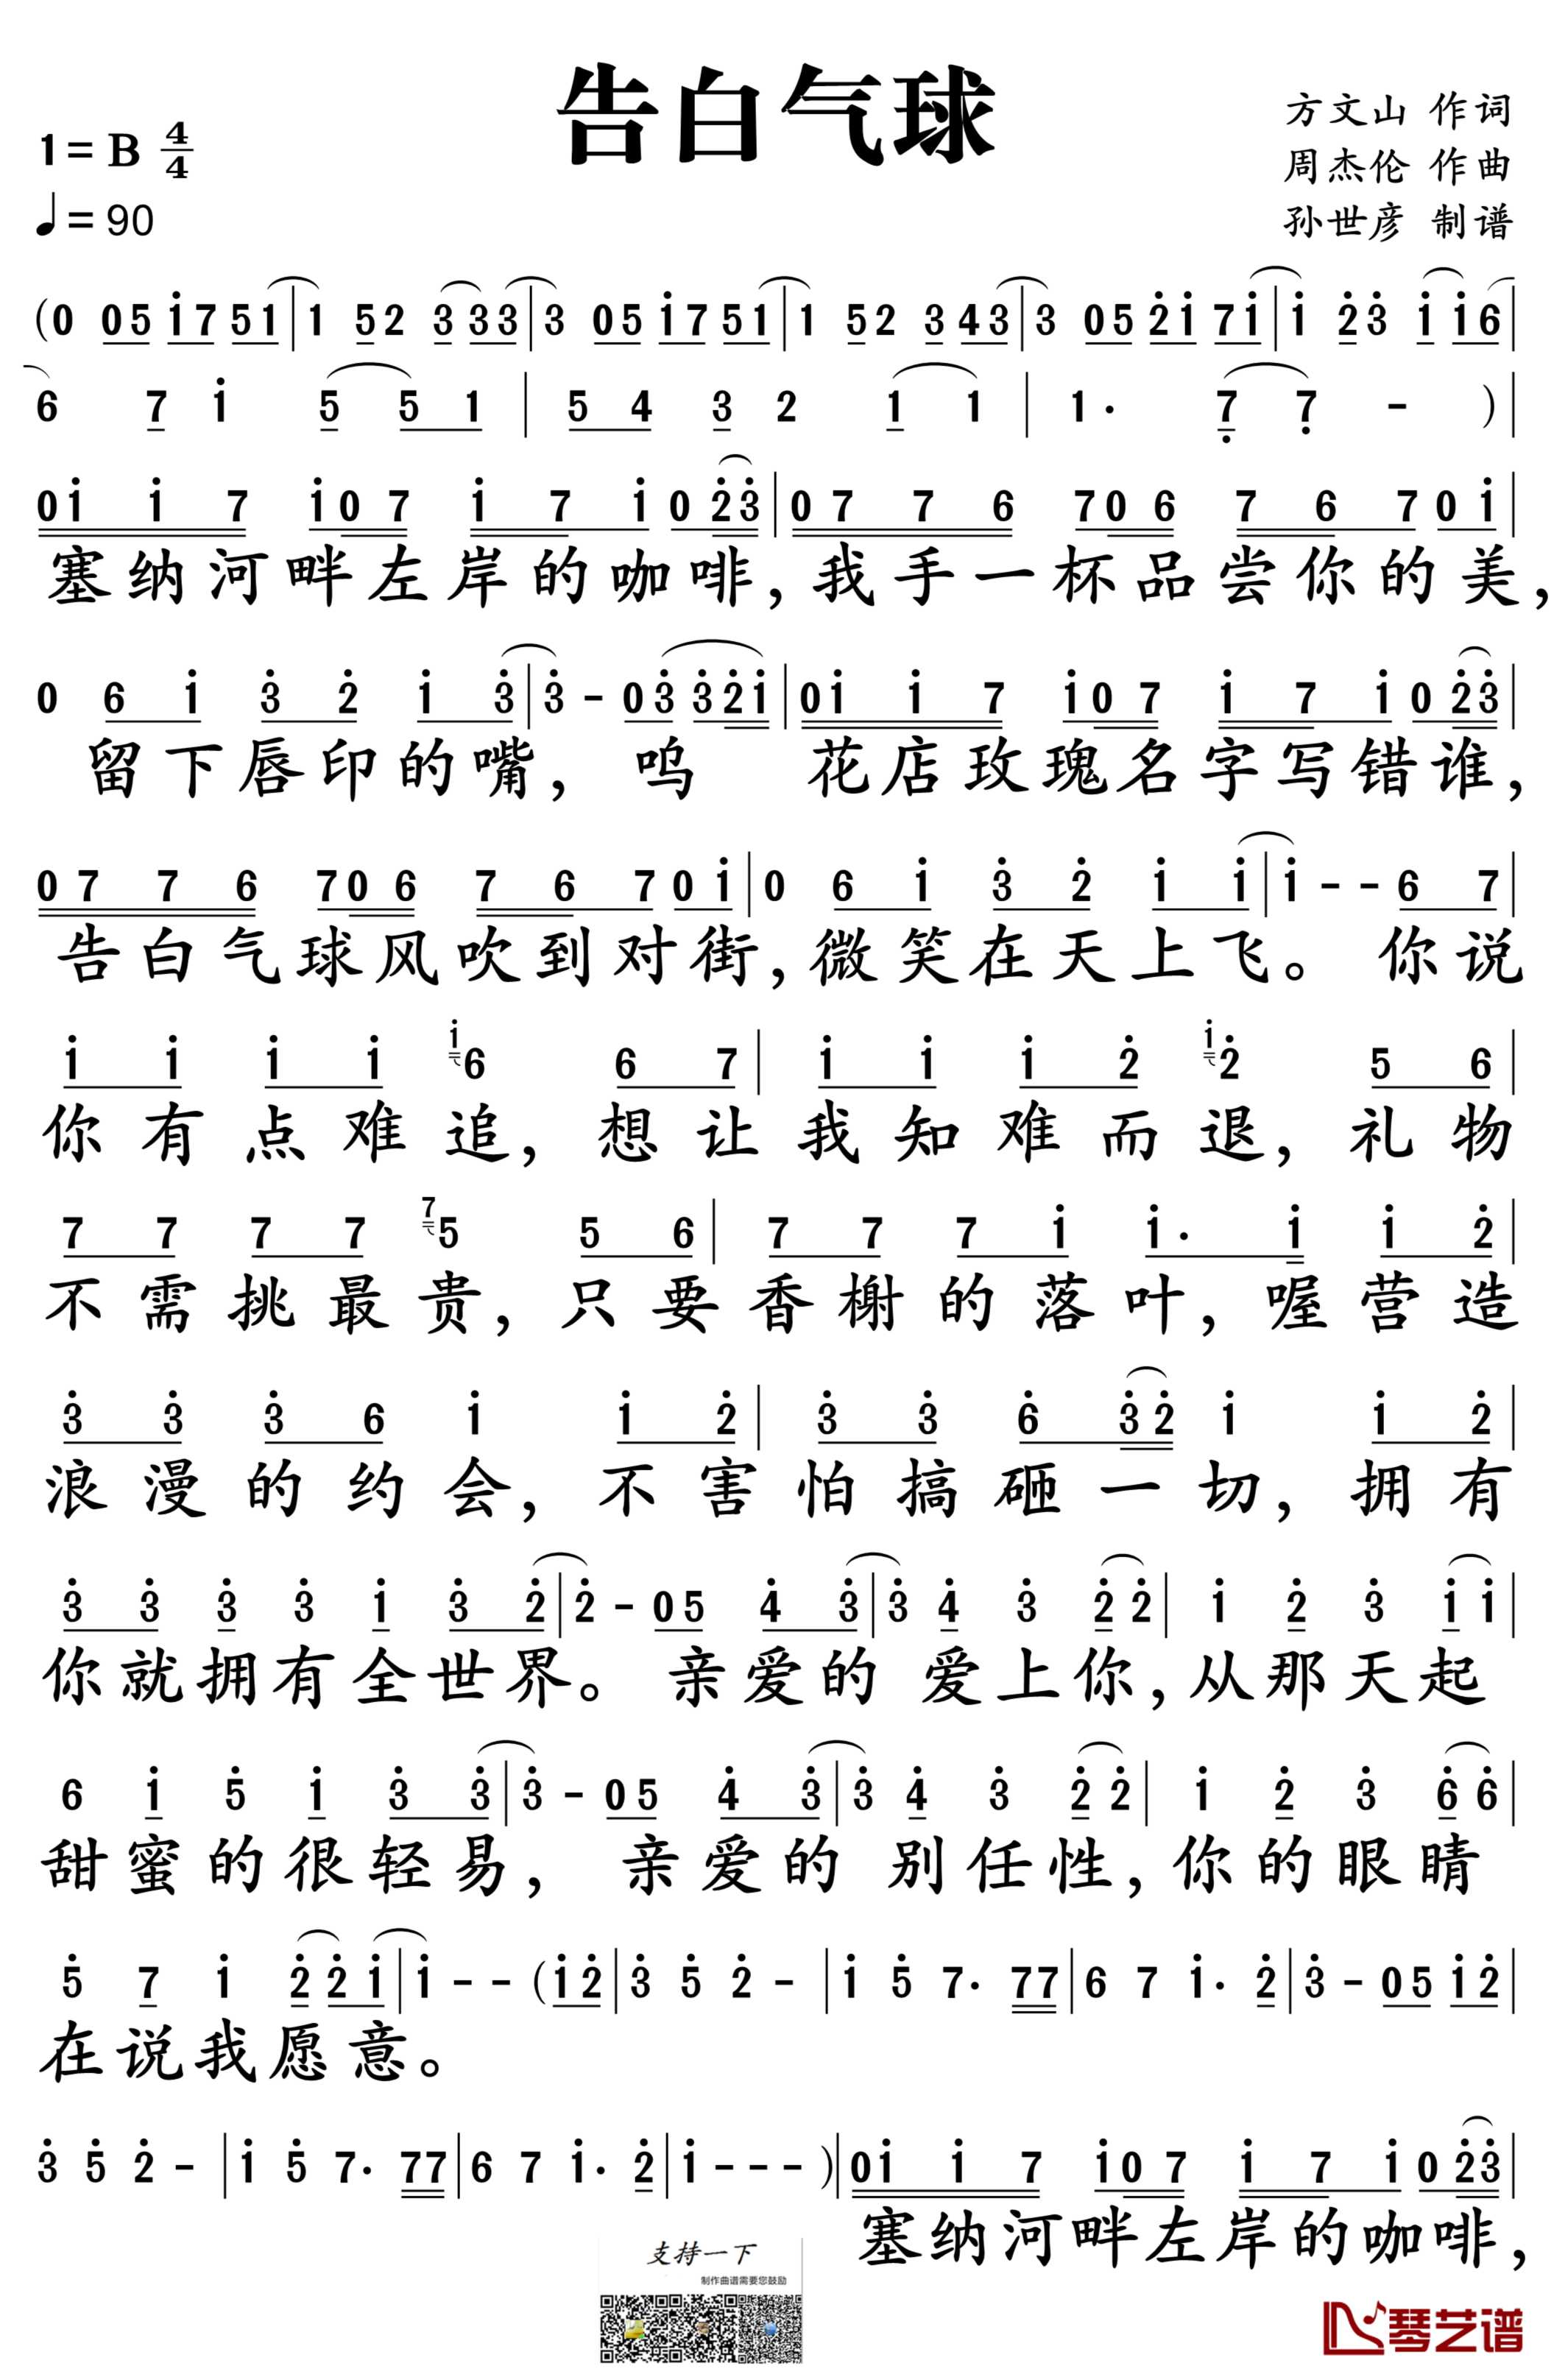 告白气球
1=B 4/4
♩=90
方文山 作词
周杰伦 作曲
孙世彦 制谱
(0 05 i7 51|1 52 3 33|3 05 i7 51|1 52 3 43|3 05 2̇i 7i|i 2̇3̇ i i6|
6 7 i 5 5 1|5 4 3 2 1 1|1· 7̣ 7̣ -)|
0i i 7 i0 7 i 7 i 0 2̇3̇|0 7 7 6 70 6 7 6 7 0 i|
塞纳河畔左岸的咖啡,我手一杯品尝你的美,
0 6 i 3̇ 2̇ i 3̇|3̇ - 03̇ 3̇2̇i|0i i 7 i0 7 i 7 i 0 2̇3̇|
留下唇印的嘴, 呜 花店玫瑰名字写错谁,
0 7 7 6 70 6 7 6 7 0 i|0 6 i 3̇ 2̇ i i|i - - 6 7|
告白气球风吹到对街,微笑在天上飞。 你说
i i i i i6 6 7|i i i 2̇ i2̇ 5 6|
你有点难追, 想让我知难而退, 礼物
7 7 7 7 75 5 6|7 7 7 i i· i i 2̇|
不需挑最贵, 只要香榭的落叶, 喔营造
3̇ 3̇ 3̇ 6 i i 2̇|3̇ 3̇ 6̇ 3̇2̇ i i 2̇|
浪漫的约会, 不害怕搞砸一切, 拥有
3̇ 3̇ 3̇ 3̇ i 3̇ 2̇|2̇ - 05 4̇ 3̇|3̇ 4̇ 3̇ 2̇ 2̇|i 2̇ 3̇ i i|
你就拥有全世界。 亲爱的 爱上你,从那天起
6 i 5̇ i 3̇ 3̇|3̇ - 05 4̇ 3̇|3̇ 4̇ 3̇ 2̇ 2̇|i 2̇ 3̇ 6̇ 6̇|
甜蜜的很轻易, 亲爱的 别任性,你的眼睛
5̇ 7 i 2̇ 2̇ i|i - - (i2̇|3̇ 5̇ 2̇ -|i 5̇ 7· 77|6 7 i· 2̇|3̇ - 05 i2̇|
在说我愿意。
3̇ 5̇ 2̇ -|i 5̇ 7· 77|6 7 i· 2̇|i - - -)|0i i 7 i0 7 i 7 i 0 2̇3̇|
塞纳河畔左岸的咖啡,
支持一下
制作曲谱需要您鼓励
琴艺谱